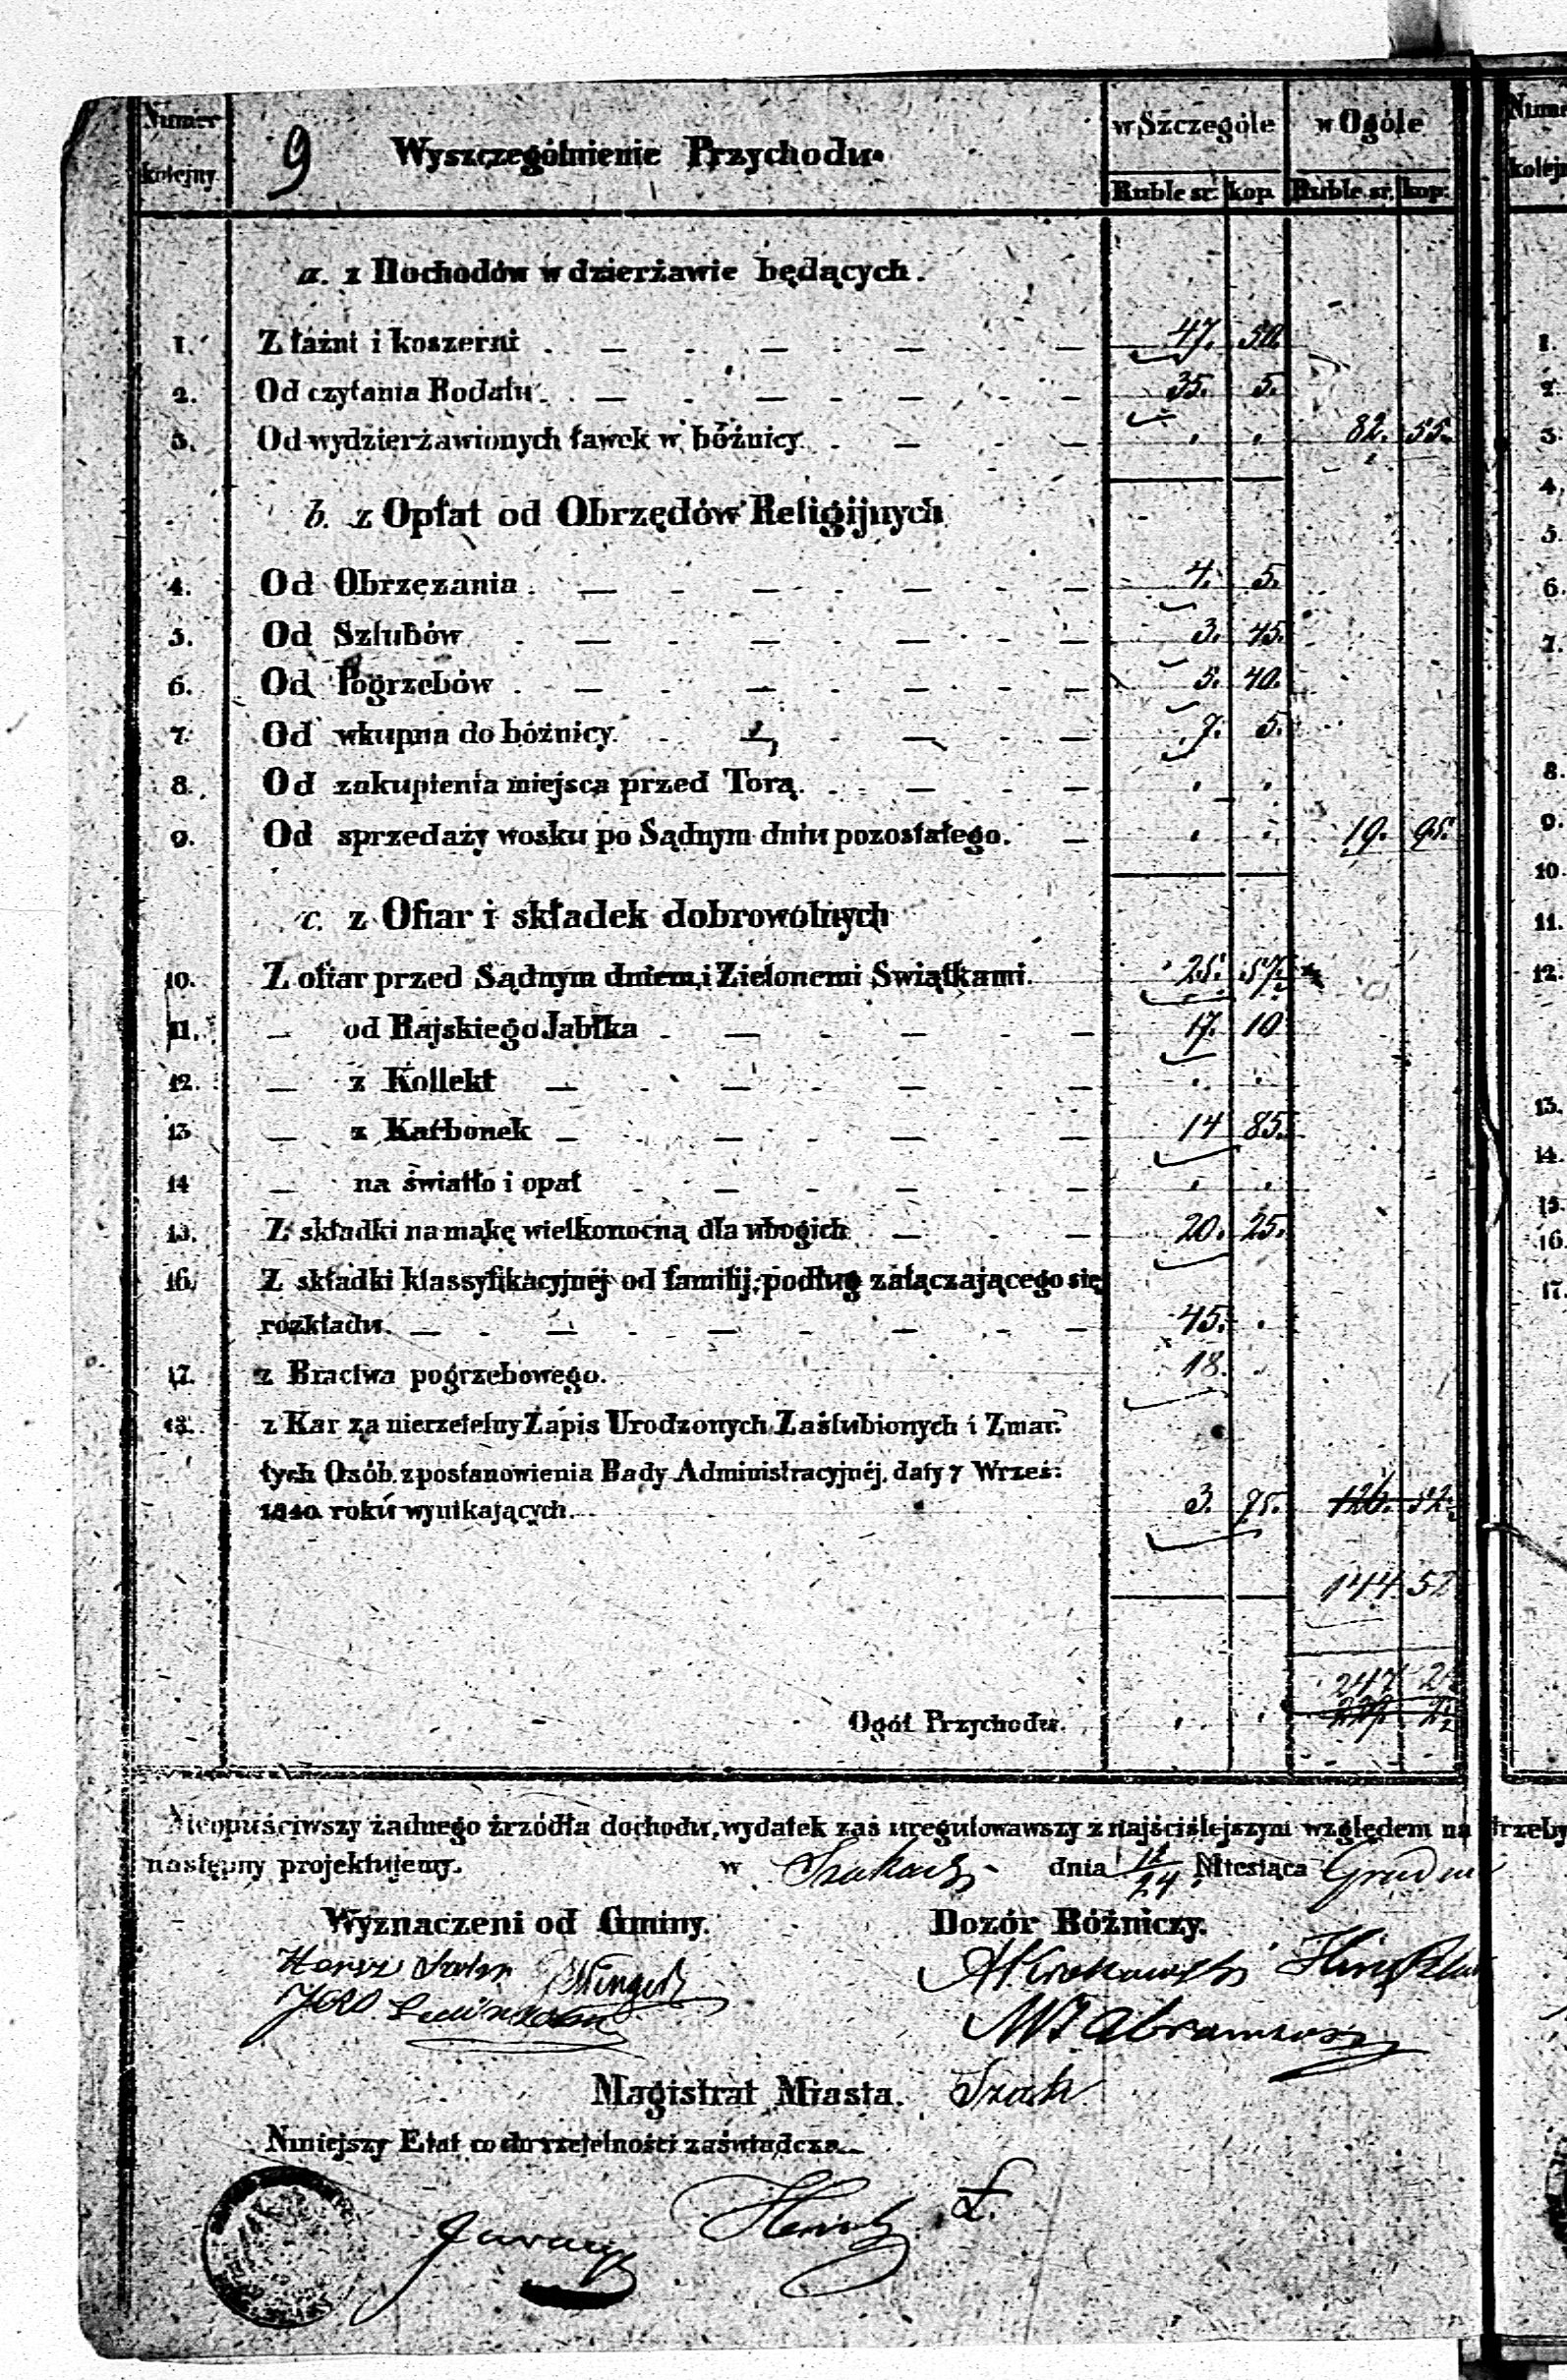 Numer kolejny
9 Wyszczególnienie Przychodu.
w Szczególe w Ogóle
Ruble sr. kop. Ruble sr. kop:
a. z Dochodów w dzierżawie będących.
1. Z łaźni i koszerni 47. 50.
2. Od czytania Rodału. 35. 5.
3. Od wydzierżawionych ławek w bóżnicy. 82. 55.
b. z Opłat od Obrzędów Religijnych
4. Od Obrzezania. 4. 5.
5. Od Szlubów 3. 45.
6. Od Pogrzebów 5. 40.
7. Od wkupna do bóżnicy. 7. 5.
8. Od zakupienia miejsca przed Torą.
9. Od sprzedaży wosku po Sądnym dniu pozostałego. 19. 95.
c. z Ofiar i składek dobrowolnych
10. Z ofiar przed Sądnym dniem i Zielonemi Swiątkami. 25. 57.
11. — od Rajskiego Jabłka 17. 10
12. — z Kollekt
13 — z Karbonek 14 85.
14 — na światło i opał
15. Z składki na mąkę wielkonocną dla ubogich 20. 25.
16. Z składki klassyfikacyjnéj od familij, podług załączającego się
rozkładu. 45.
17. z Bractwa pogrzebowego. 18.
18. z Kar za nierzetelny Zapis Urodzonych Zaślubionych i Zmar:
łych Osób, z postanowienia Rady Administracyjnéj, daty 7 Wrześ:
1840 roku wynikających. 3. 75. 126. 52.
144 52
247 2
Ogół Przychodu.
Nieopuściwszy żadnego źrzódła dochodu, wydatek zaś uregulowawszy z najściślejszym względem na trzeby
następny projektujemy. w dnia 12/24 Miesiąca Grudnia
Wyznaczeni od Gminy. Dozór Bóżniczy.
M I Abramson
Magistrat Miasta.
Niniejszy Etat co do rzetelności zaświadcza.